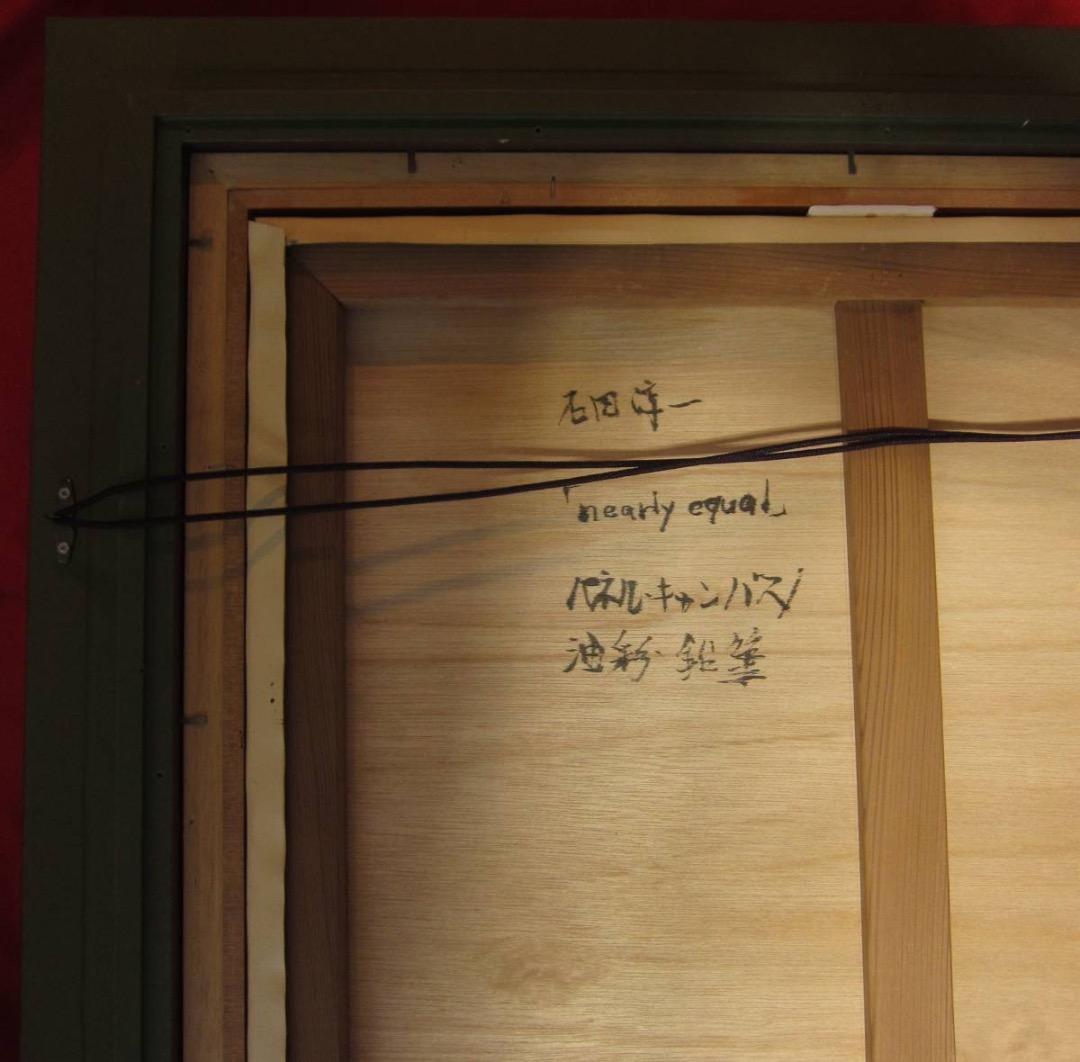 石田淳一
「nearly equal」
パネル・キャンバス
油彩・鉛筆